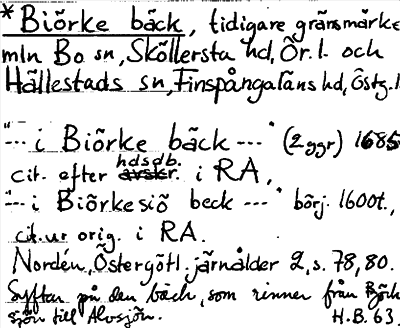 *Biörke bäck, tidigare gränsmärke
mln Bo sn, Sköllersta hd, Ör. l. och
Hällestads sn, Finspångaläns hd, Östg. l.
"--- i Biörke bäck ---" (2 ggr) 1685
hdsdb.
cit. efter avskr. i RA,
"--- i Biörkesiö beck ---" börj. 1600t.,
cit. ur orig. i RA.
Nordén, Östergötl. järnålder 2, s. 78, 80.
Syftar på den bäck, som rinner från Björk-
sjön till Alvsjön. H.B. 63.